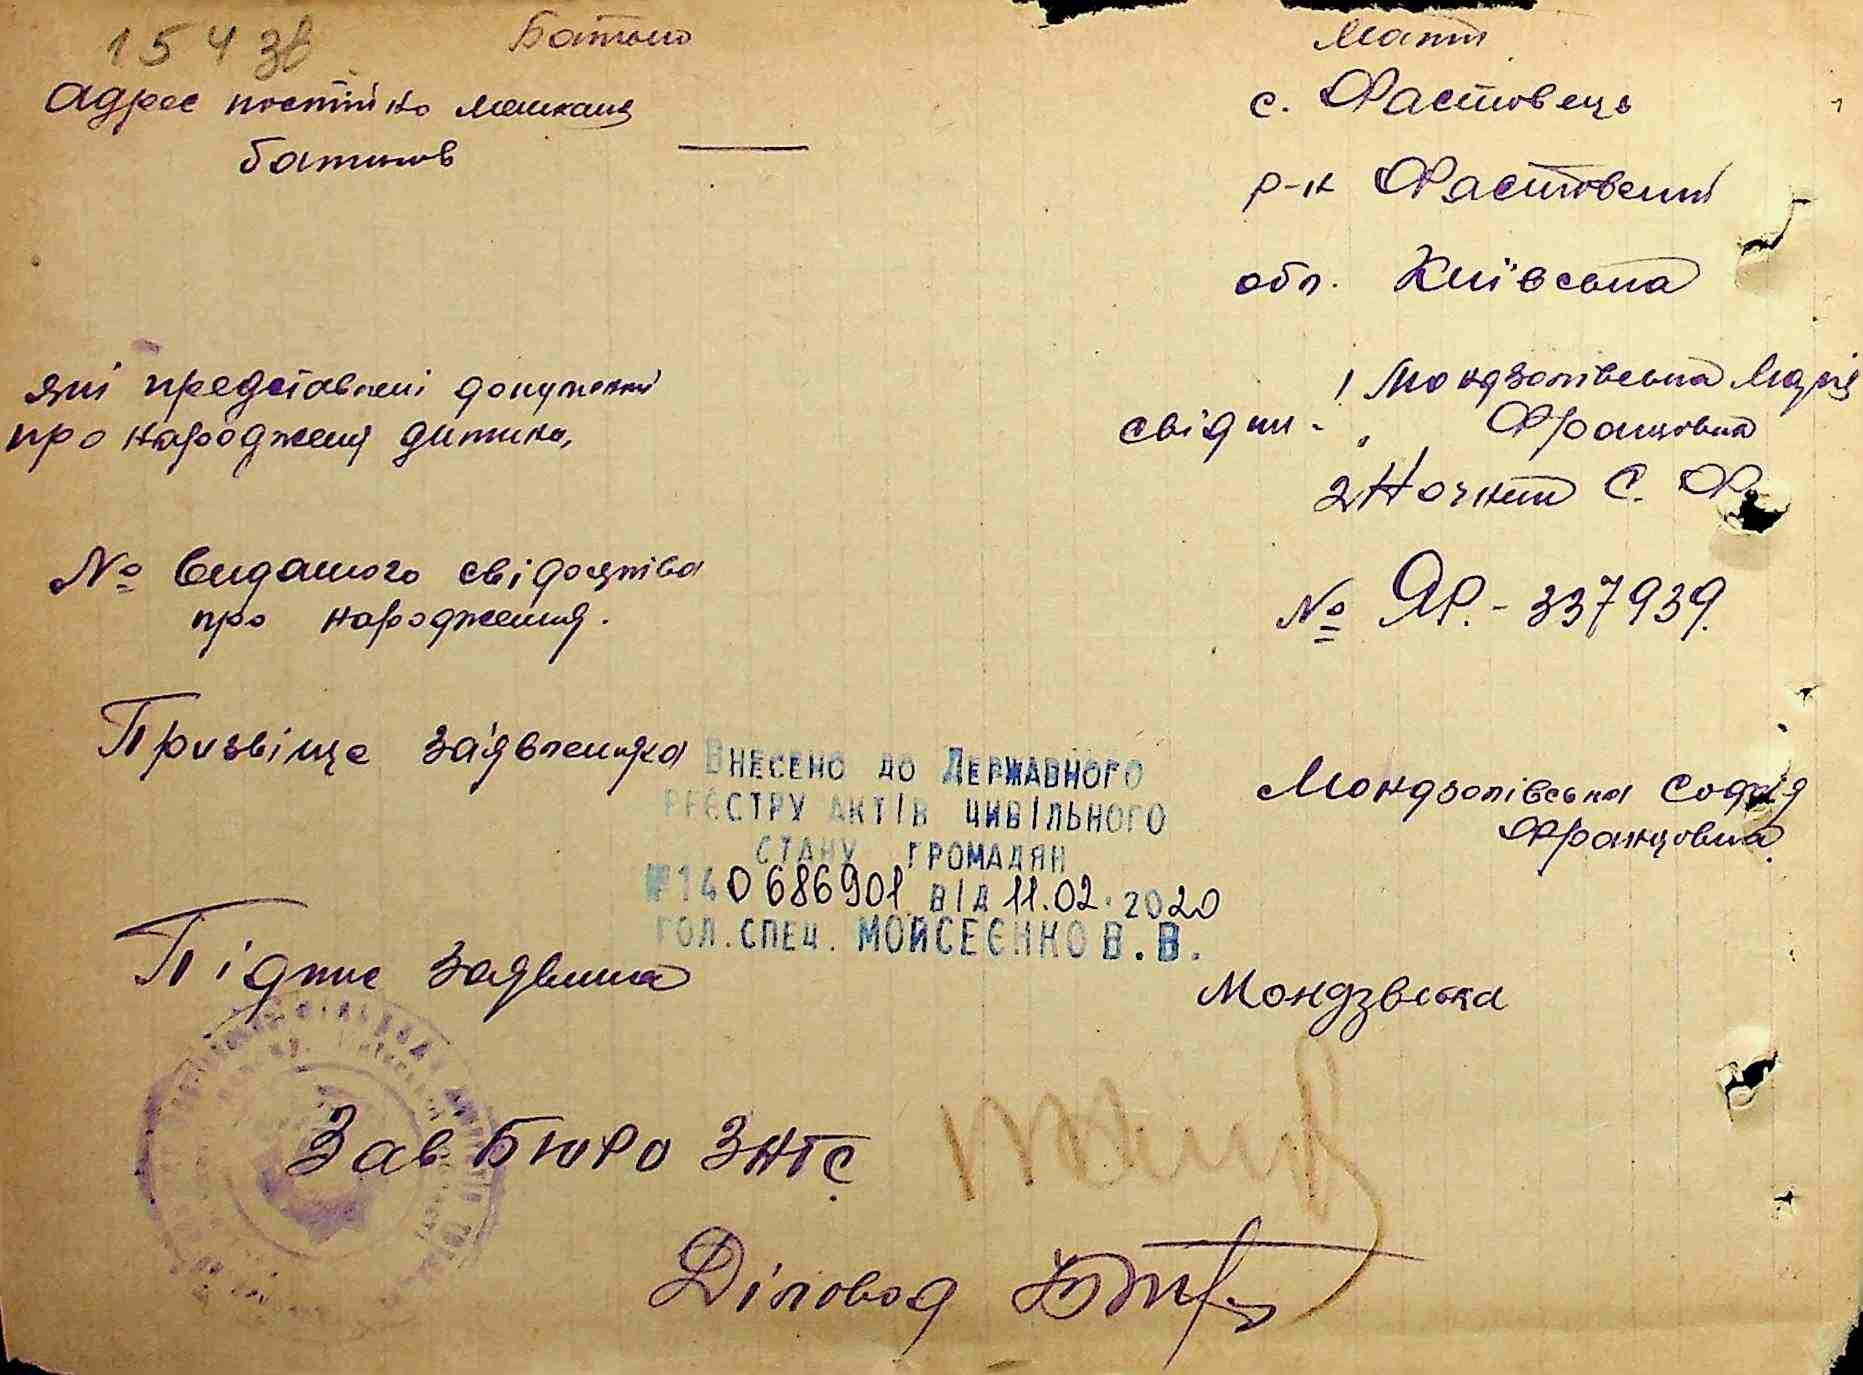 154 зв
Батько
Мати
Адрес постійно мешканц
батьків
с. Фастовець
р-н Фастовський
обл. Київська
які представлені документи
про народженя дитини,
свідки -
1 Мондзолівська Марія
Францовна
2 Ночнит С. Ф.
№ виданого свідоцтва
про народження.
№ ЯР. - 337939.
Призвіще заявленика
Мондзолівська Софія
Францовна
Внесено до Державного
реєстру актів цивільного
стану громадян
№140686901 від 11.02.2020
гол. спец. Мойсеєнко В. В.
Підпис заявника
Мондзвська
Зав Бюро ЗАГС
Діловод